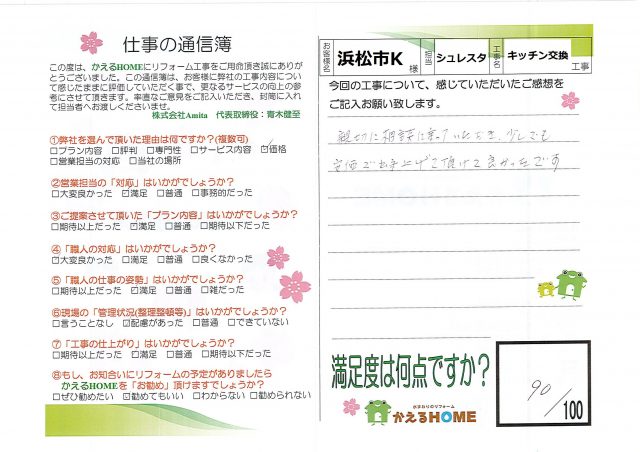 仕事の通信簿
この度は、かえるHOMEにリフォーム工事をご用命頂き誠にありが
とうございました。この通信簿は、お客様に弊社の工事内容につい
て感じたままに評価していただく事で、更なるサービスの向上の参
考にさせて頂きます。率直なご意見をご記入いただき、封筒に入れ
て担当者へお渡しくださいませ。
株式会社Amita 代表取締役：青木健至
①弊社を選んで頂いた理由は何ですか？(複数可)
□プラン内容 □評判 □専門性 □サービス内容 ☑価格
□営業担当の対応 □当社の場所
②営業担当の「対応」はいかがでしょうか？
□大変良かった ☑満足 □普通 □事務的だった
③ご提案させて頂いた「プラン内容」はいかがでしょうか？
□期待以上だった ☑満足 □普通 □期待以下だった
④「職人の対応」はいかがでしょうか？
☑大変良かった □満足 □普通 □良くなかった
⑤「職人の仕事の姿勢」はいかがでしょうか？
□期待以上だった ☑満足 □普通 □雑だった
⑥現場の「管理状況(整理整頓等)」はいかがでしょうか？
□言うことなし ☑配慮があった □普通 □できていない
⑦「工事の仕上がり」はいかがでしょうか？
□期待以上だった ☑満足 □普通 □期待以下だった
⑧もし、お知合いにリフォームの予定がありましたら
かえるHOMEを「お勧め」頂けますでしょうか？
□ぜひ勧めたい ☑勧めてもいい □わからない □勧められない
お客様名 浜松市K 様 担当 シュレスタ 工事名 キッチン交換 工事
今回の工事について、感じていただいたご感想を
ご記入お願い致します。
親切に相談に乗っていただき、少しでも
安価で仕上げて頂けて良かったです
満足度は何点ですか？
90/100
水まわりのリフォーム
かえるHOME